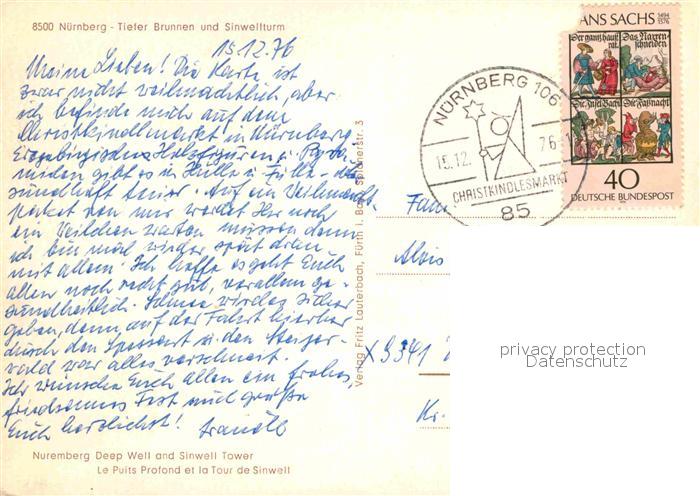 8500 Nürnberg - Tiefer Brunnen und Sinwellturm
15.12.76
Meine Lieben! Die Karte ist
zwar nicht weihnachtlich, aber
ich befinde mich auf dem
Christkindlmarkt in Nürnberg
Erzgebirgisches Holzfiguren u. Pyra-
miden gibt es in Hülle u. Fülle -
sündhaft teuer. Auf ein Weihnachts-
paket von mir werdet Ihr noch
ein Weilchen warten müssen denn
ich bin mal wieder spät dran
mit allem. Ich hoffe es geht Euch
allen noch recht gut, vor allem ge-
sundheitlich. Schnee wird es sicher
geben, denn auf der Fahrt hierher
durch den Spessart u. den Steiger-
wald war alles verschneit.
Ich wünsche Euch allen ein frohes,
friedsames Fest und grüße
Euch herzlichst!
Nuremberg Deep Well and Sinwell Tower
Le Puits Profond et la Tour de Sinwell
Verlag Fritz Lauterbach, Fürth i. Bay., 3
NÜRNBERG 106
15.12. 76
CHRISTKINDLESMARKT
85
ANS SACHS 1494 1576
Der gantz haußrat. Das Narren schneiden
Die Insel Bachi Die Faßnacht
40
DEUTSCHE BUNDESPOST
Fam
Alois
X 9341
Kr.
privacy protection
Datenschutz